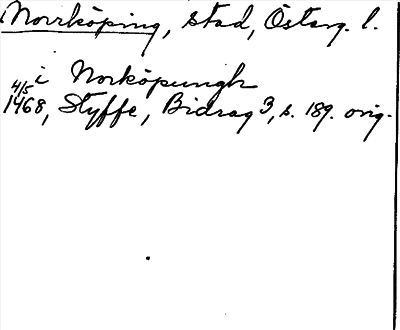 Norrköping, stad, Österg. l.
i Norköpungh
4/5
1468, Styffe, Bidrag 3, s. 189. orig.